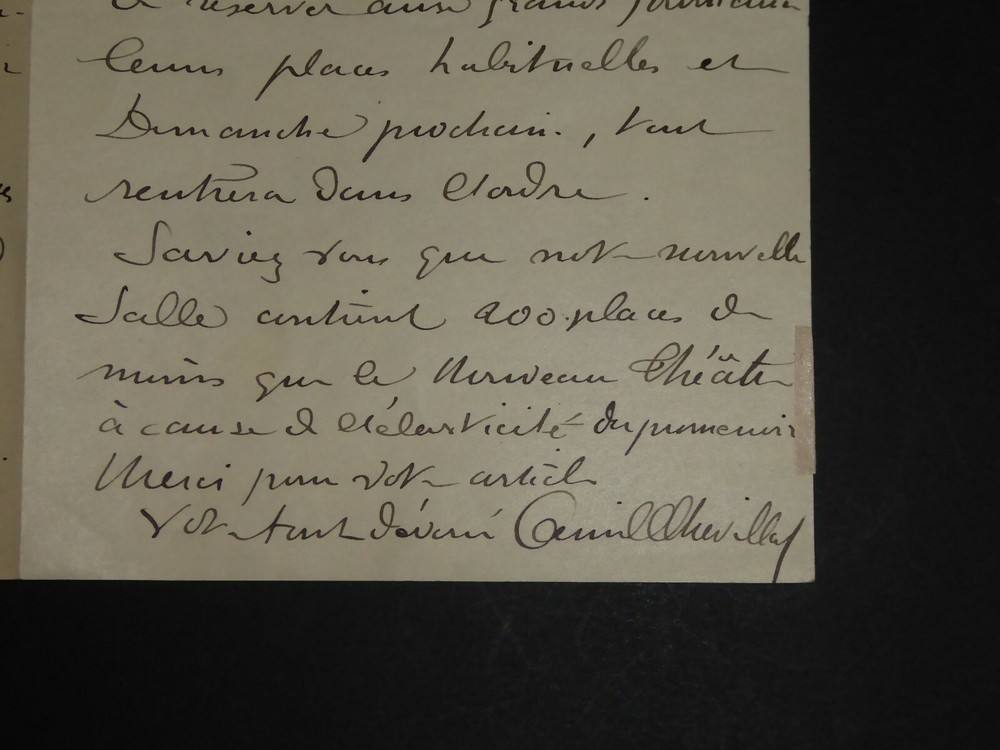 de réserver aux grands journaux
leurs places habituelles et
Dimanche prochain, tout
rentrera dans l'ordre.
Saviez vous que notre nouvelle
Salle contient 200 places de
moins que le Nouveau Théâtre
à cause de l'élasticité du promenoir
Merci pour votre article
Votre tout dévoué Camille Chevillard